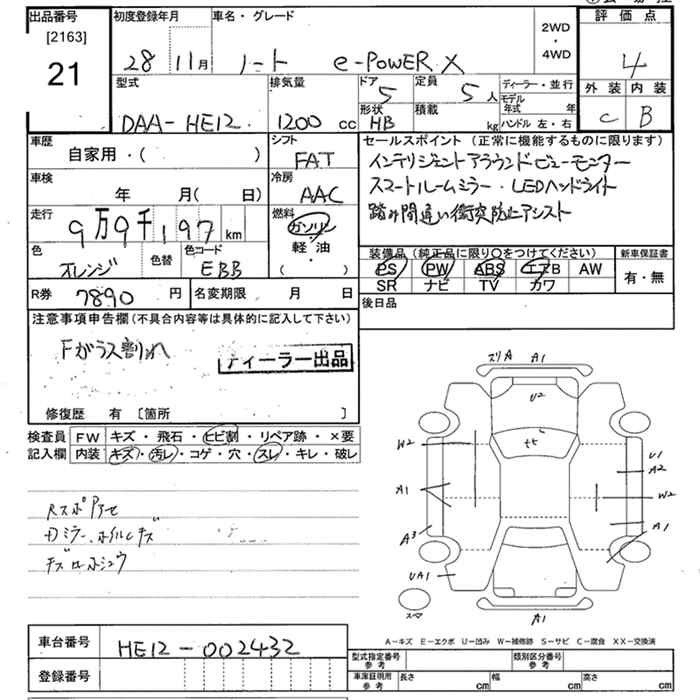 出品番号
[2163]
21
初度登録年月
28 11月
車名・グレード
ノート e-POWER X
2WD
・
4WD
評価点
4
外装 内装
C B
型式
DAA-HE12
排気量
1200 cc
ドア
5
形状
HB
定員
5人
積載
kg
ディーラー・並行
モデル年式 年
ハンドル 左・右
車歴
自家用・( )
シフト
FAT
車検
年 月( 日)
冷房
AAC
走行
9万9千197 km
燃料
ガソリン
軽・油
( )
色
オレンジ
色替
色コード
EBB
R券 7890 円
名変期限 月 日
セールスポイント (正常に機能するものに限ります)
インテリジェントアラウンドビューモニター
スマートルームミラー・LEDヘッドライト
踏み間違い衝突防止アシスト
装備品 (純正品に限り○をつけてください)
PS PW ABS エアB AW
SR ナビ TV カワ
新車保証書
有・無
後日品
注意事項申告欄 (不具合内容等は具体的に記入して下さい)
Fガラス割れ
ディーラー出品
修復歴 有 [箇所 ]
検査員記入欄
FW キズ・飛石・ヒビ割・リペア跡・×要
内装 キズ・汚レ・コゲ・穴・スレ・キレ・破レ
スリA A1
U2
W2
A1
A3
UA1
U1
A2
W2
A1
A1
スマ
A-キズ E-エクボ U-凹み W-補修跡 S-サビ C-腐食 XX-交換済
車台番号
HE12-002432
登録番号
型式指定番号
参考
類別区分番号
参考
車庫証明用
参考
長さ cm 幅 cm 高さ cm